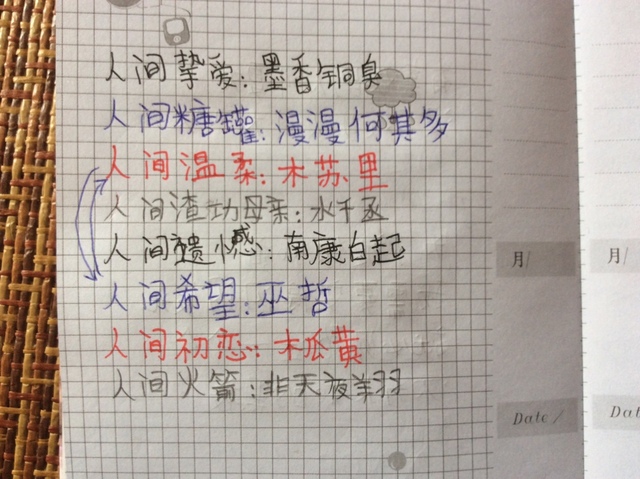 人间挚爱：墨香铜臭
人间糖罐：漫漫何其多
人间温柔：木苏里
人间渣功母亲：水千丞
人间遗憾：南康白起
人间希望：巫哲
人间初恋：木瓜黄
人间火箭：非天夜翔
月/
月/
Date/
Dat